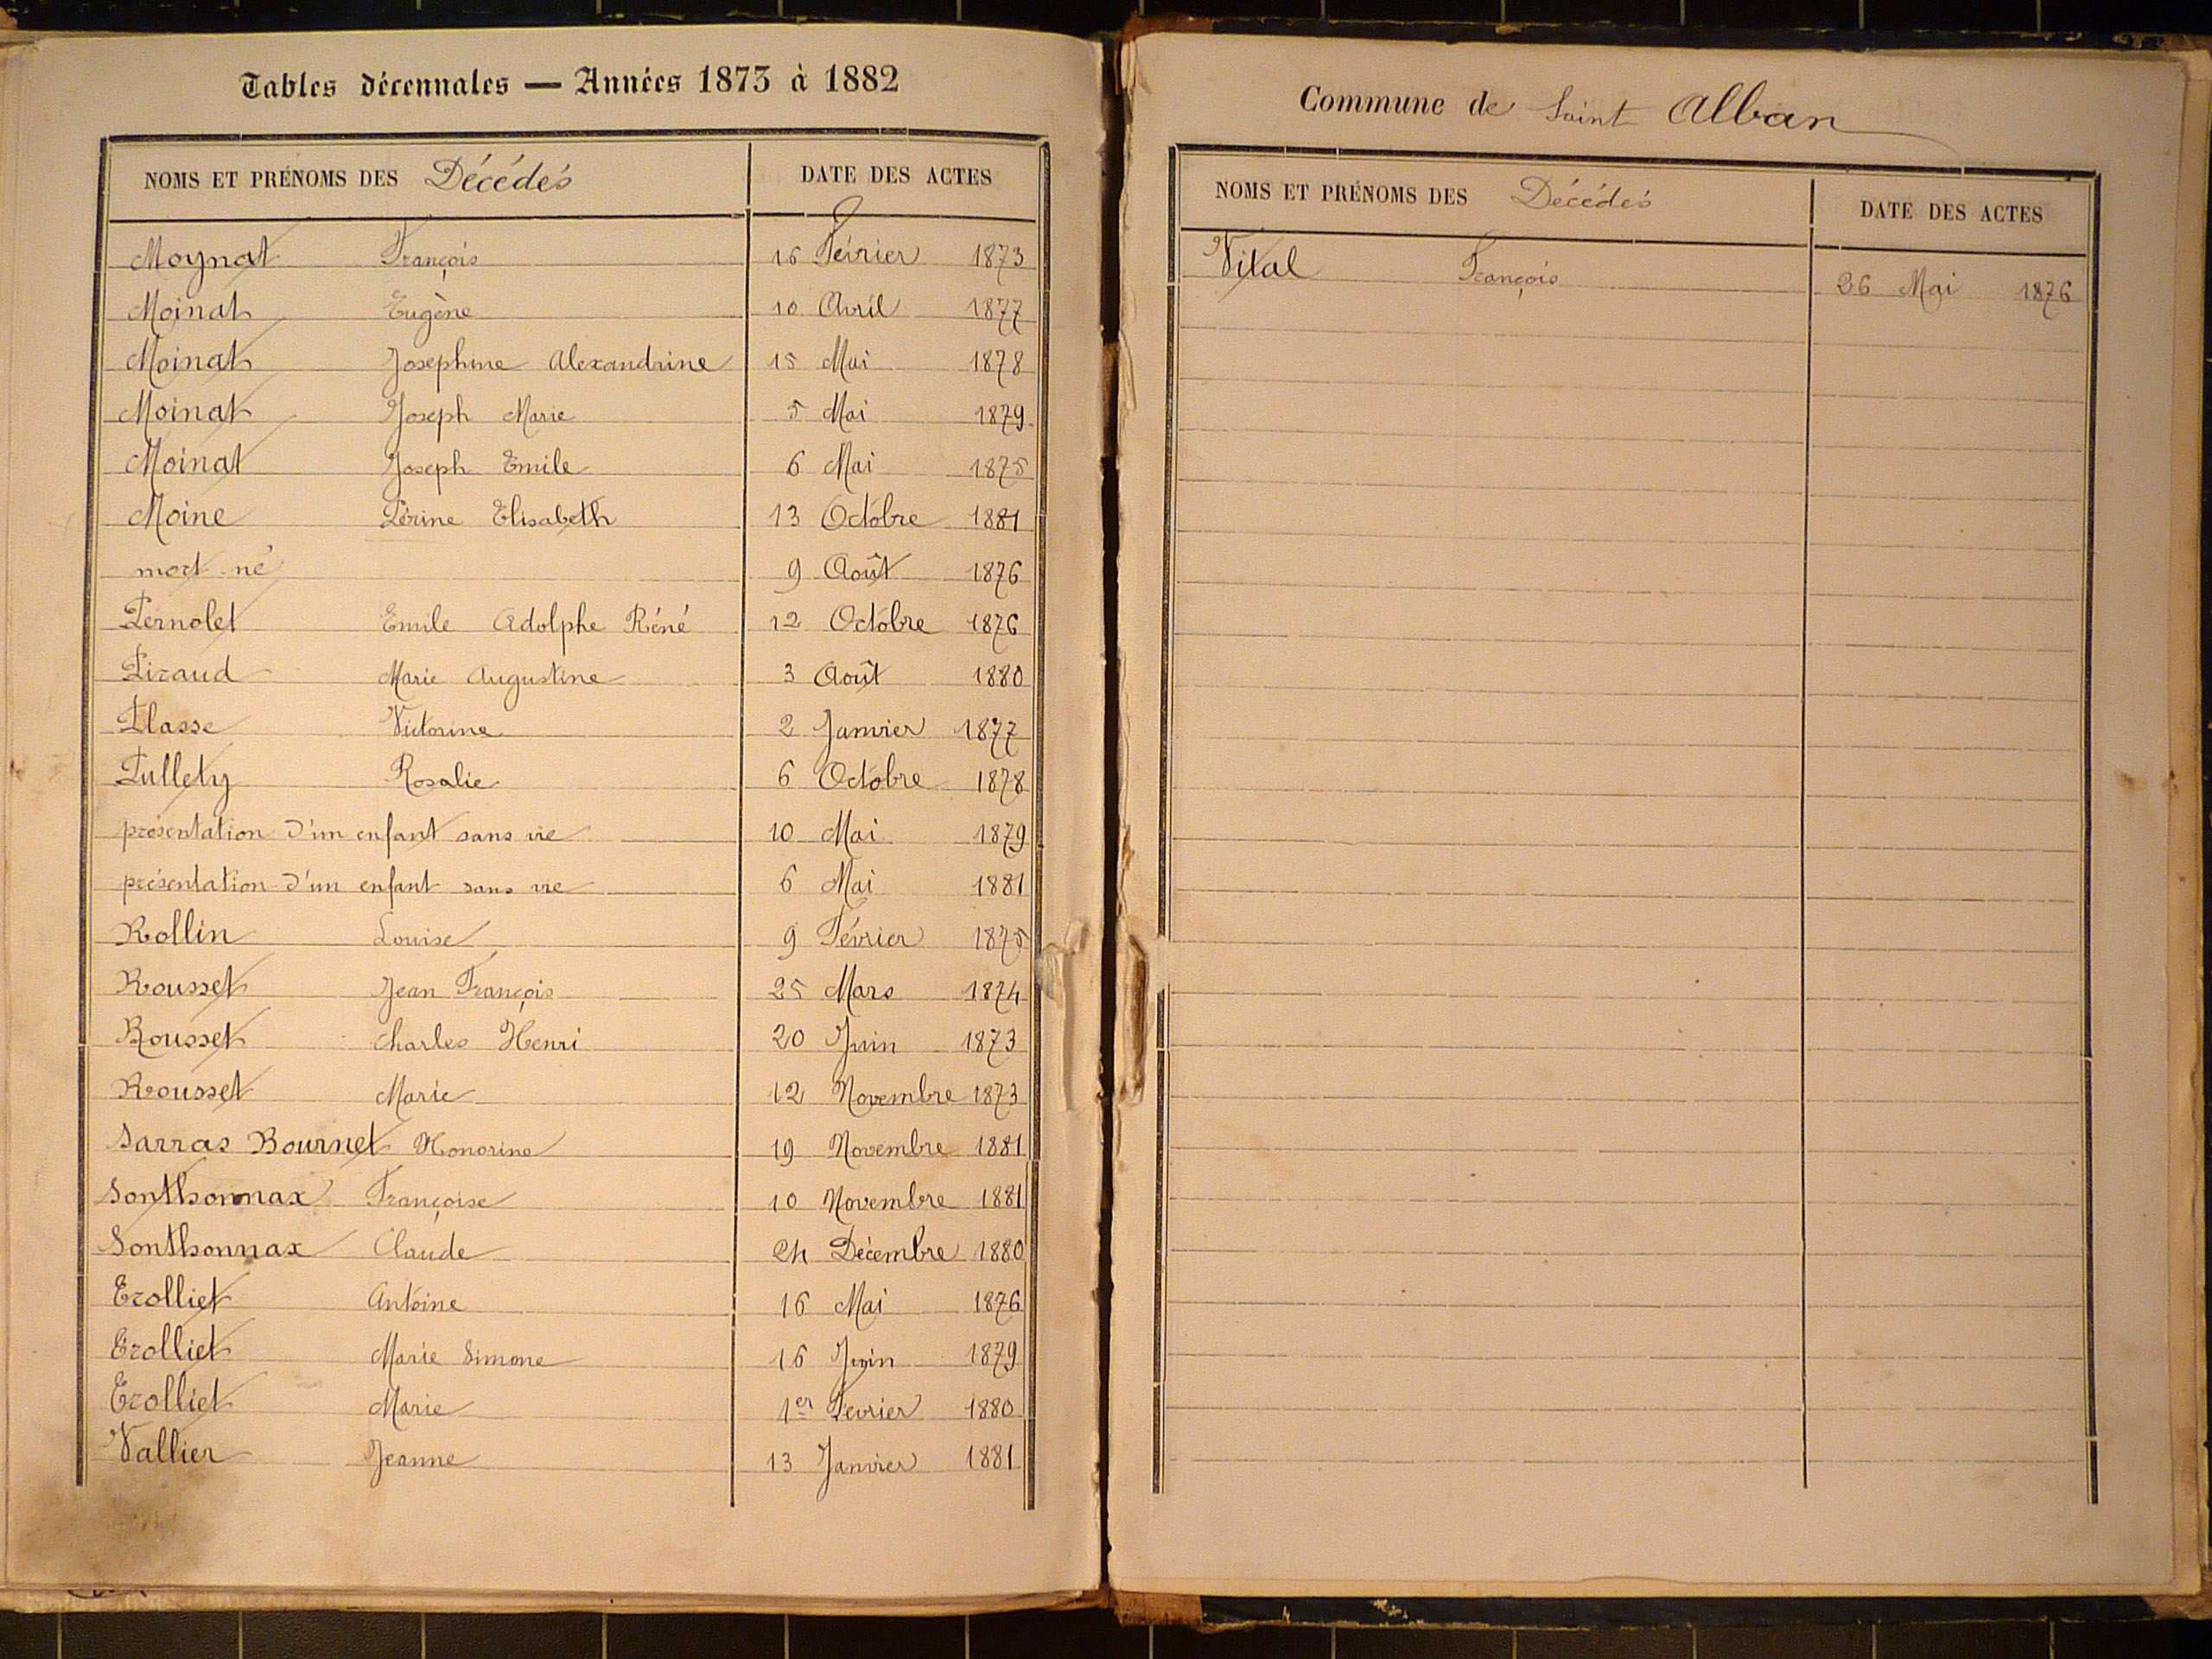 Tables décennales — Années 1873 à 1882
NOMS ET PRÉNOMS DES Décédés DATE DES ACTES
Moynat François 16 Février 1873
Moinat Eugène 10 Avril 1877
Moinat Josephine Alexandrine 15 Mai 1878
Moinat Joseph Marie 5 Mai 1879
Moinat Joseph Emile 6 Mai 1875
Moine Périne Elisabeth 13 Octobre 1881
mort né 9 Août 1876
Pernolet Emile Adolphe Réné 12 Octobre 1876
Piraud Marie Augustine 3 Août 1880
Plasse Victorine 2 Janvier 1877
Pullety Rosalie 6 Octobre 1878
présentation d'un enfant sans vie 10 Mai 1879
présentation d'un enfant sans vie 6 Mai 1881
Rollin Louise 9 Février 1875
Rousset Jean François 25 Mars 1874
Rousset Charles Henri 20 Juin 1873
Rousset Marie 12 Novembre 1873
Sarras Bournet Honorine 19 Novembre 1881
Sonthonnax Françoise 10 Novembre 1881
Sonthonnax Claude 24 Décembre 1880
Trolliet Antoine 16 Mai 1876
Trolliet Marie Simone 16 Juin 1879
Trolliet Marie 1er Fevrier 1880
Vallier Jeanne 13 Janvier 1881
Commune de Saint Alban
NOMS ET PRÉNOMS DES Décédés DATE DES ACTES
Vital François 26 Mai 1876